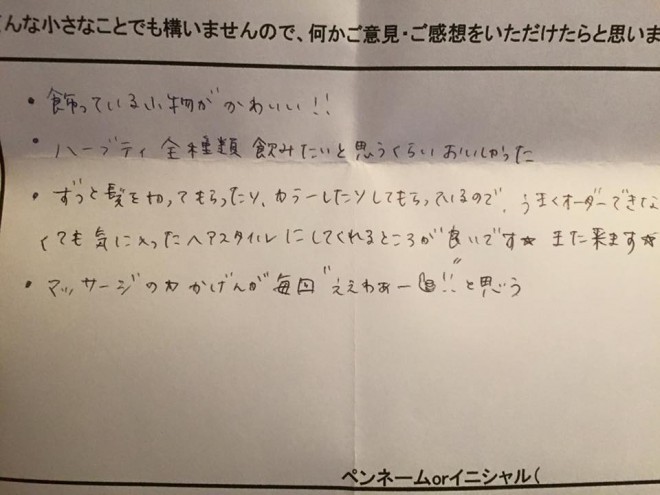 んな小さなことでも構いませんので、何かご意見・ご感想をいただけたらと思いま
・飾っている小物がかわいい!!
・ハーブティ 全種類 飲みたいと思うくらい おいしかった
・ずっと髪を切ってもらったり、カラーしたりしてもらっているので、うまくオーダーできな
くても気に入ったヘアスタイルにしてくれるところが良いです☆ また来ます☆
・マッサージの力かげんが毎回"ええわぁー!!"と思う
ペンネームorイニシャル(